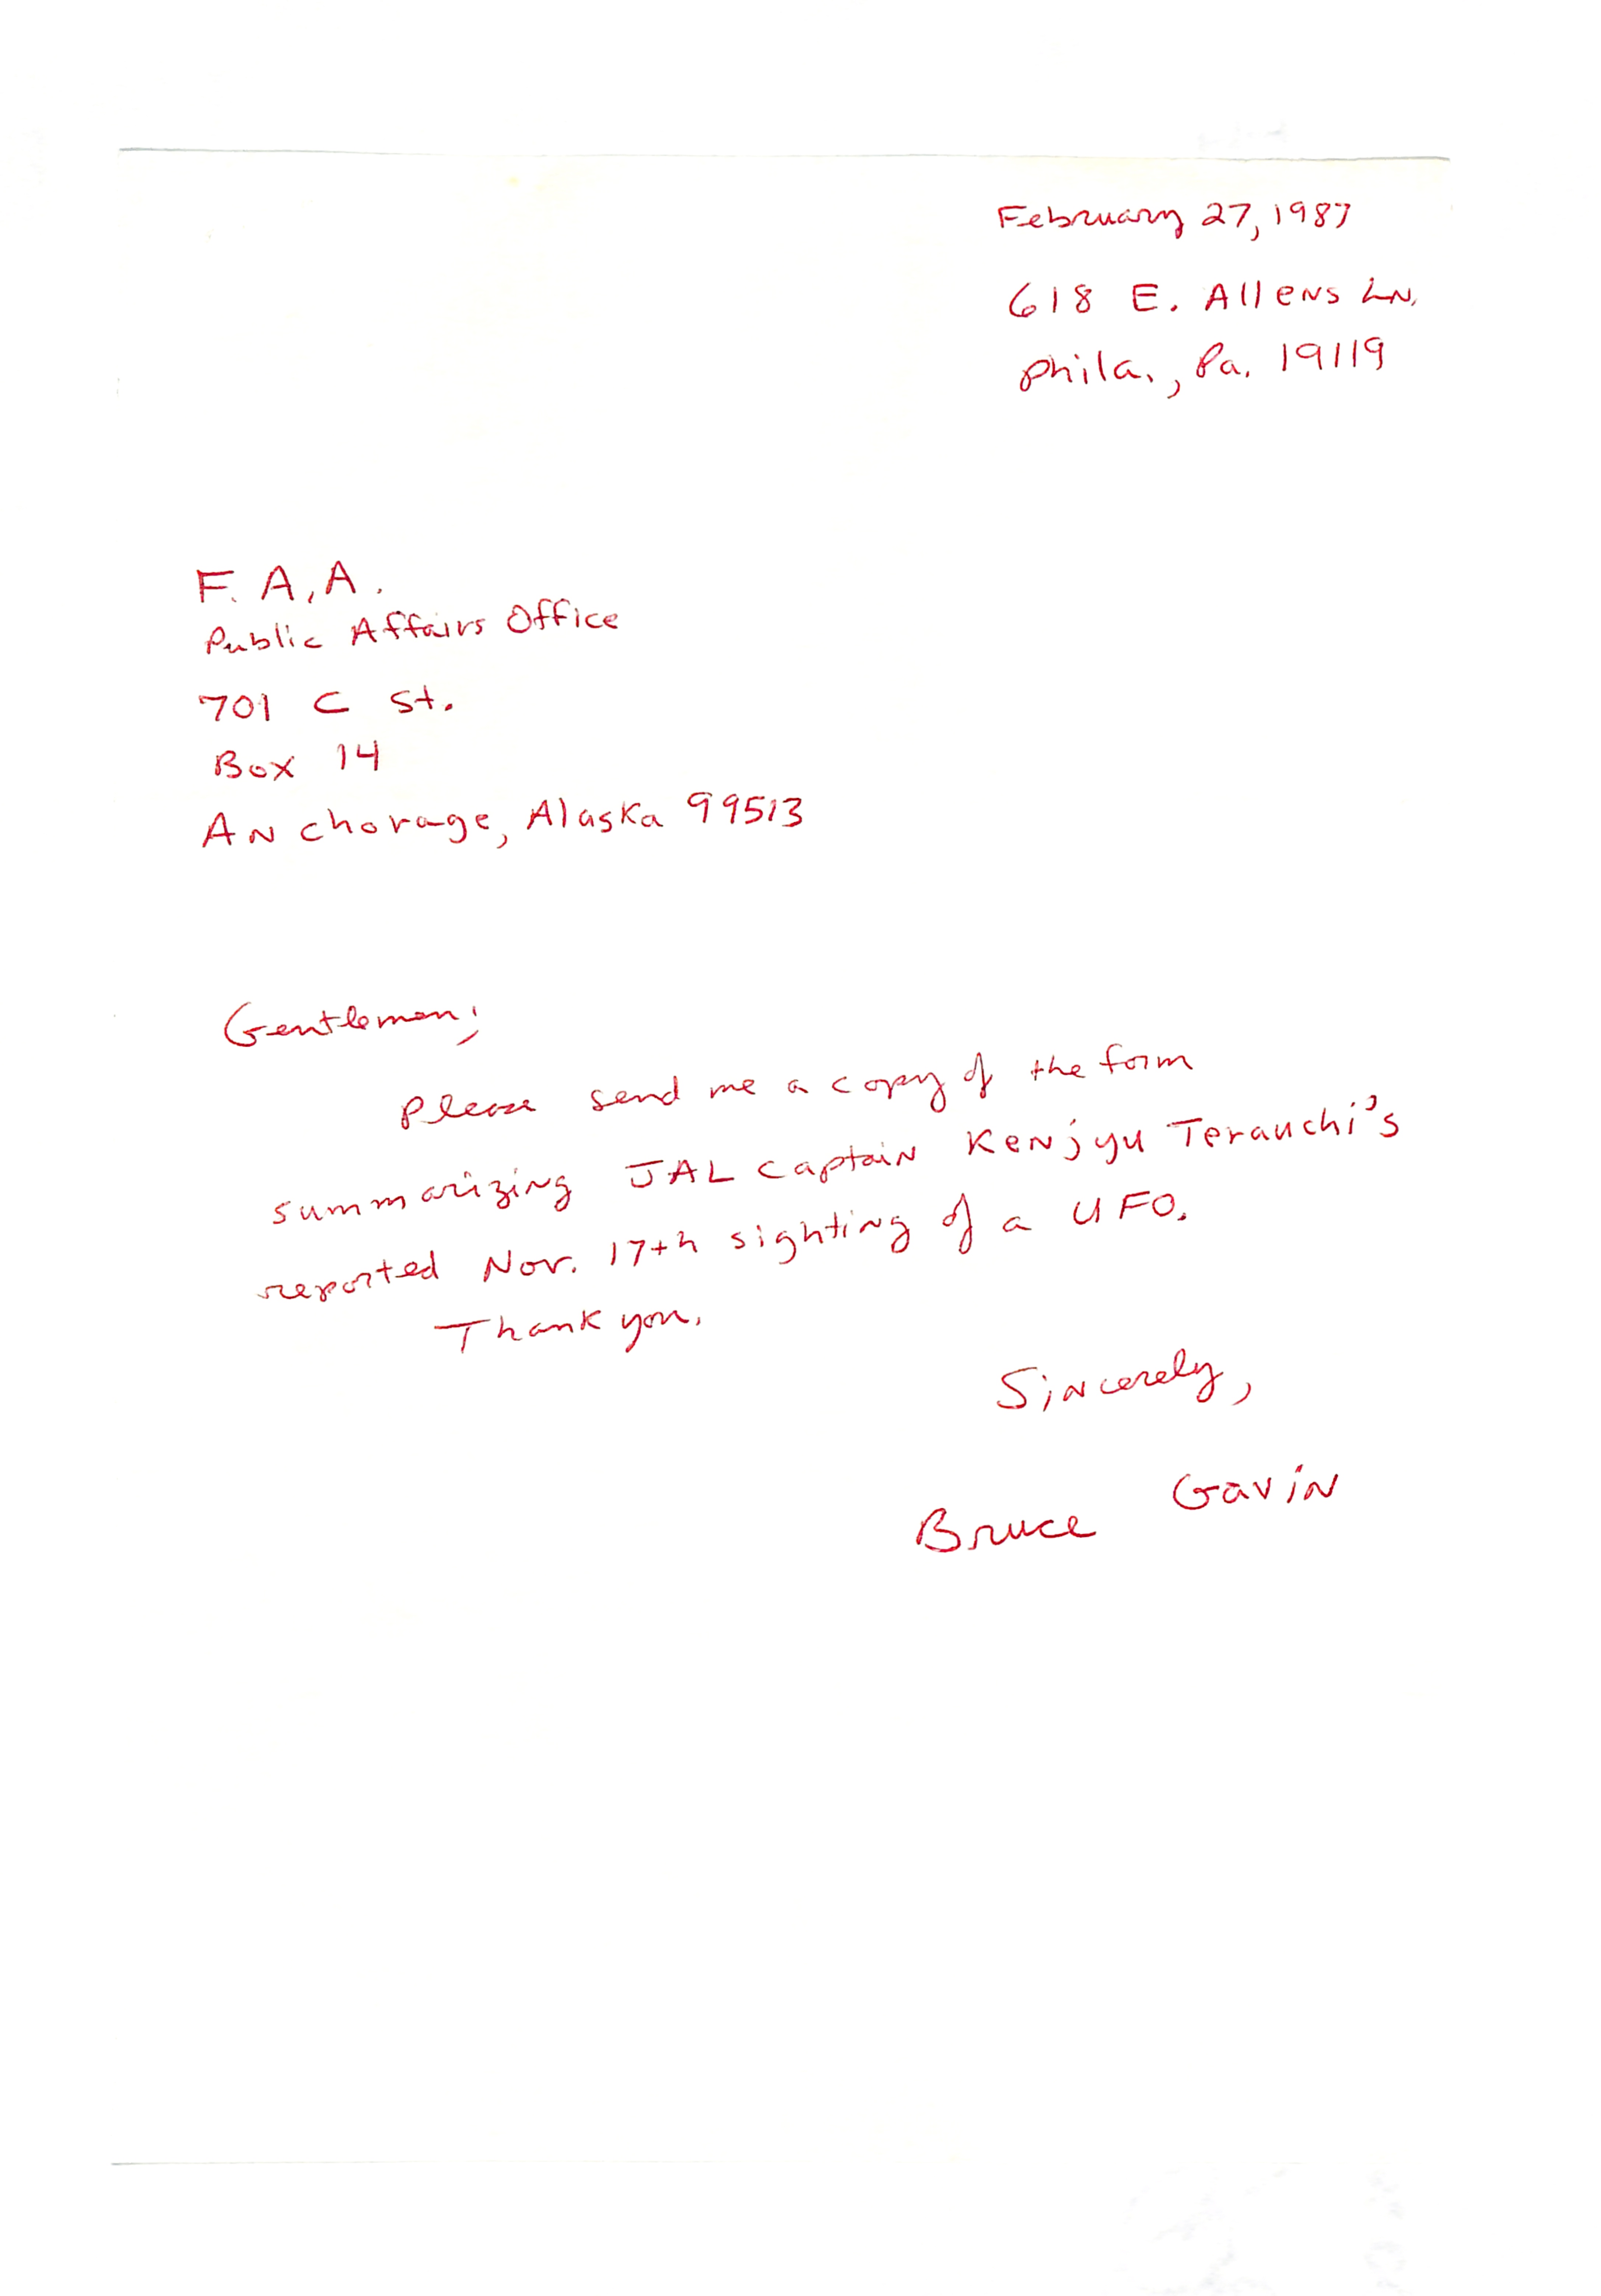 February 27, 1987
618 E. Allens LN.
Phila., Pa. 19119
F. A. A.
Public Affairs Office
701 C St.
Box 14
Anchorage, Alaska 99513
Gentlemen;
Please send me a copy of the form
summarizing JAL captain Kenjyu Terauchi's
reported Nov. 17th sighting of a UFO.
Thank you.
Sincerely,
Bruce Gavin